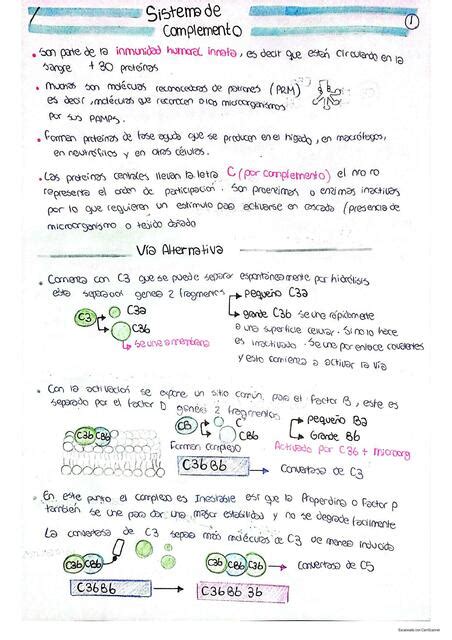 Sistema de
Complemento
1
• Son parte de la inmunidad humoral innata, es decir que están circulando en la
sangre + 30 proteínas
• Muchas son moléculas reconocedoras de patrones (PRM)
es decir, moléculas que reconocen a los microorganismos
por sus PAMPs.
• Forman proteínas de fase aguda que se producen en el hígado, en macrófagos,
en neutrófilos y en otras células.
• Las proteínas centrales llevan la letra C (por complemento) el no ro
representa el orden de participación. Son proenzimas o enzimas inactivas
por lo que requieren un estímulo para activarse en cascada (presencia de
microorganismo o tejido dañado
Vía Alternativa
• Comienza con C3 que se puede separar espontáneamente por hidrólisis
esta separación genera 2 fragmentos
pequeño C3a
grande C3b se une rápidamente
a una superficie celular. Si no lo hace
es inactivado. Se une por enlace covalentes
y esto comienza a activar la vía
C3
C3a
C3b
se une a membrana
• Con la activación se expone un sitio común para el factor B, este es
separado por el factor D genera 2 fragmentos
pequeño Ba
Grande Bb
Activado por C3b + microorg
C3b CBb
CB
C
CBb
Forman complejo
C3bBb
Convertasa de C3
• En este punto el complejo es Inestable así que la Properdina o Factor P
también se une para dar una mayor estabilidad y no se degrade facilmente
La convertasa de C3 separa más moléculas de C3 de manera inducida
C3b CBb
C3b CBb C3b
convertasa de C5
C3bBb
C3bBb 3b
Escaneado con CamScanner